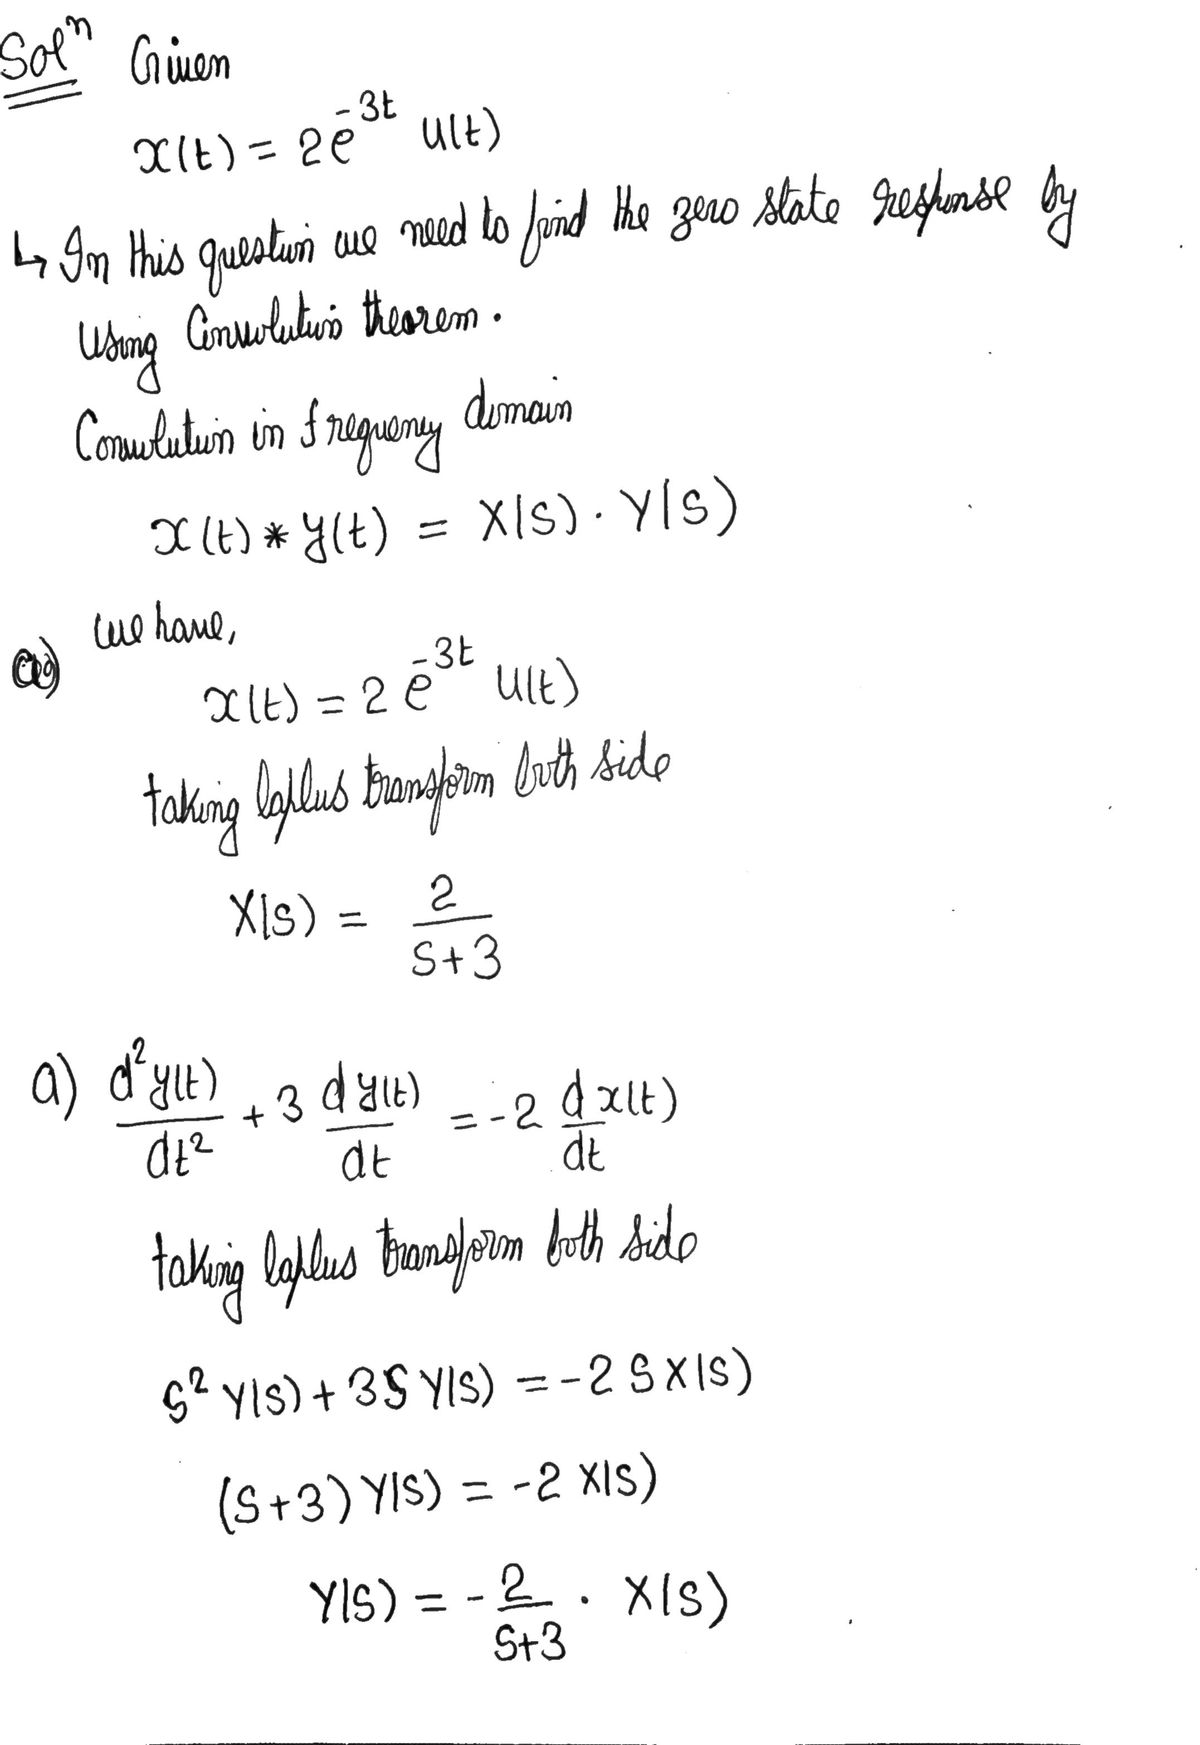 Solⁿ Given
x(t) = 2e^{-3t} u(t)
↳ In this question we need to find the zero state response by
using Convolution theorem.
Convolution in frequency domain
x(t) * y(t) = X(s) · Y(s)
we have,
x(t) = 2 e^{-3t} u(t)
taking laplus transform both side
X(s) = 2/(s+3)
a) d²y(t)/dt² + 3 dy(t)/dt = -2 dx(t)/dt
taking laplus transform both side
s² Y(s) + 3s Y(s) = -2 s X(s)
(s+3) Y(s) = -2 X(s)
Y(s) = -2/(s+3) · X(s)